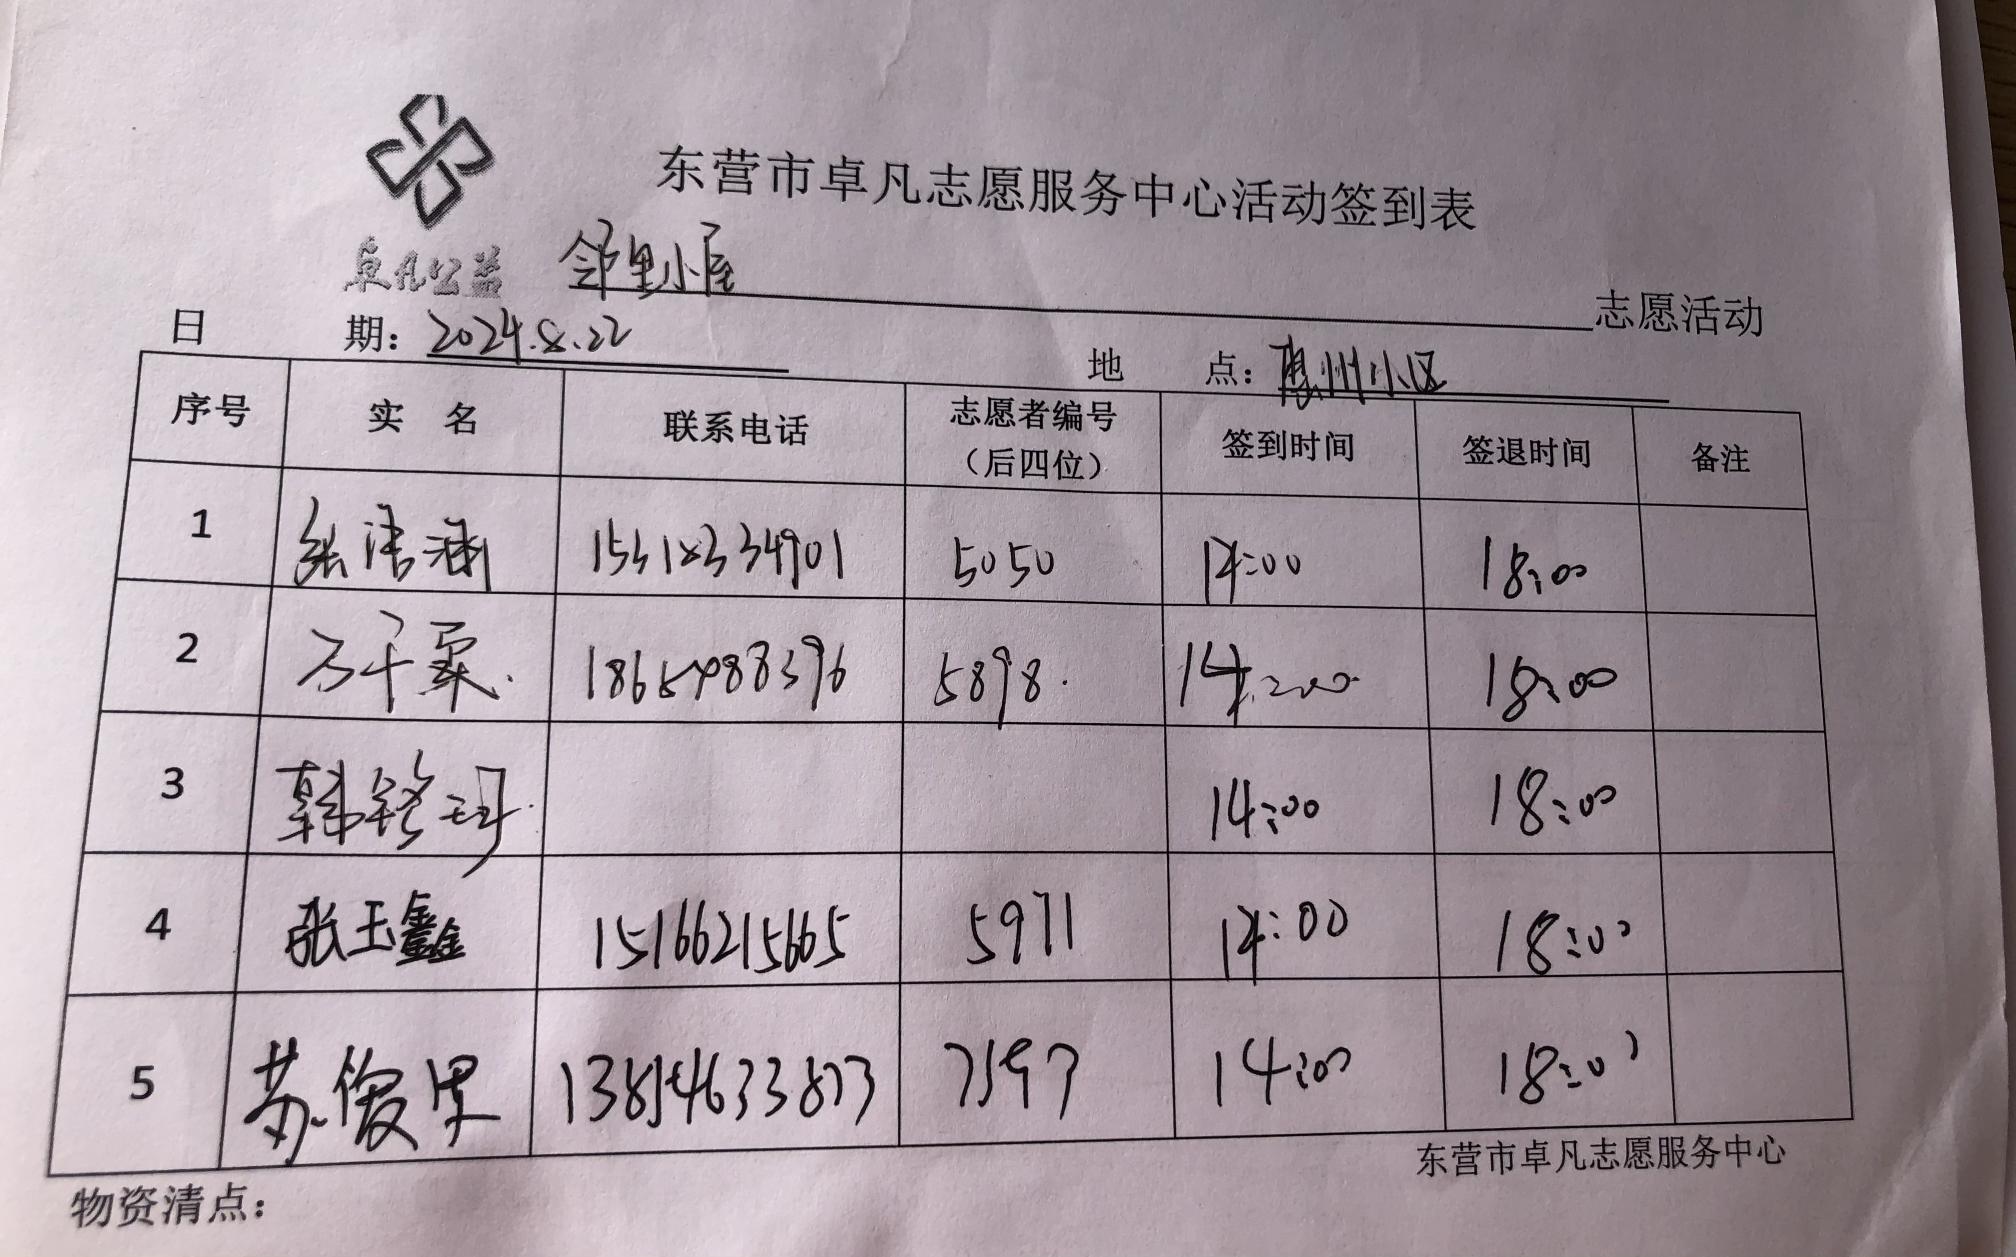 东营市卓凡志愿服务中心活动签到表
卓凡公益 邻里小屋 志愿活动
日 期：2024.8.22 地 点：惠州小区
序号 实 名 联系电话 志愿者编号（后四位） 签到时间 签退时间 备注
1 5050 14:00 18:00
2 万千 5898. 14:00 18:00
3 韩铭珂. 14:00 18:00
4 张玉鑫 15166215665 5971 14:00 18:00
5 苏俊 13854633873 7597 14:00 18:00
东营市卓凡志愿服务中心
物资清点：